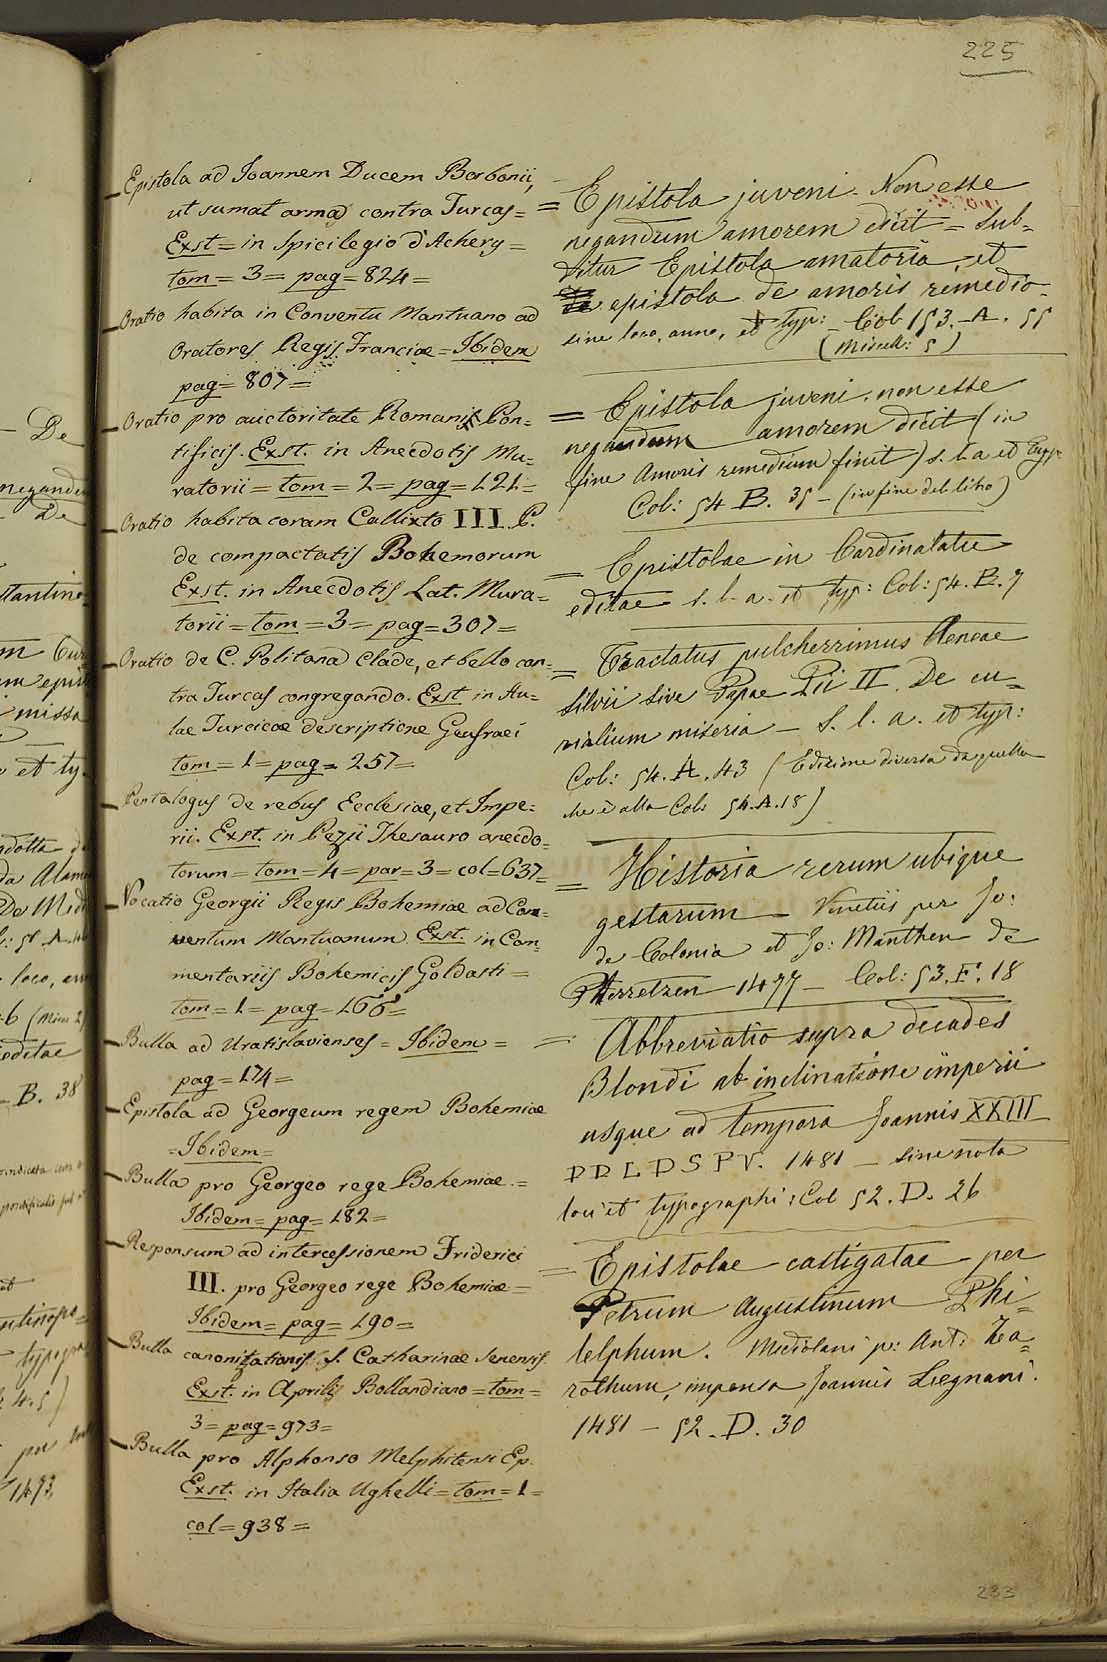 225
Epistola ad Joannem Ducem Borbonii,
ut sumat arma contra Turcas=
Exst=in Spicilegio d'Achery=
tom=3=pag=824=
Oratio habita in Conventu Mantuano ad
Oratores Regis Franciae=Ibidem
pag=807=
Oratio pro auctoritate Romanis Pon=
tificis. Exst. in Anecdotis Mu=
ratorii=tom=2=pag=121=
Oratio habita coram Callixto III. P.
de compactatis Bohemorum
Exst. in Anecdotis Lat. Mura=
torii=tom=3=pag=307=
Oratio de C. Politana Clade, et bello con=
tra Turcas congregando. Exst in Au=
lae Turcicae descriptione Geufraei
tom=1=pag=257=
Pentalogus de rebus Ecclesiae, et Impe=
rii. Exst. in Pezii Thesauro anecdo=
torum=tom=4=par=3=col=637=
Vocatio Georgii Regis Bohemiae ad Con=
ventum Mantuanum Exst. in Com=
mentariis Bohemicis Goldasti=
tom=1=pag=166=
Bulla ad Uratislavienses=Ibidem=
pag=174=
Epistola ad Georgeum regem Bohemiae
=Ibidem=
Bulla pro Georgeo rege Bohemiae.=
Ibidem=pag=182=
Responsum ad intercessionem Friderici
III. pro Georgeo rege Bohemiae=
Ibidem=pag=190=
Bulla canonizationis S. Catharinae Senensis
Exst. in Aprilis Bollandiano=tom=
3=pag=973=
Bulla pro Alphonso Melphitensi Ep.
Exst. in Italia Ughelli=tom=1=
col=938=
= Epistola juveni. Non esse
negandum amorem dicit = Sub=
ditur Epistola amatoria, et
epistola de amoris remedio.
sine loco, anno, et typ: Col 153.-A. 55
(Miscell: 5)
= Epistola juveni. non esse
negandum amorem dicit (in
fine Amoris remedium finit) s. l. a et typ.
Col: 54 B. 35 - (in fine del libro)
= Epistolae in Cardinalatu
editae s. l. a. et typ: Col: 54. B. 7
= Tractatus pulcherrimus Aeneae
Silvii sive Papae Pii II. De cu=
rialium miseria - S. l. a. et typ:
Col: 54. A. 43 (Edizione diversa da quella
che è alla Col: 54.A.18)
= Historia rerum ubique
gestarum - Venetiis per Jo:
de Colonia et Jo: Manthen de
Gherretzen 1477 - Col: 53. F. 18
= Abbreviatio supra decades
Blondi ab inclinatione imperii
usque ad tempora Joannis XXIII
P D L D S P V. 1481 - sine nota
loci et typographi: Col 52. D. 26
= Epistolae castigatae per
Petrum Augustinum Phi=
lelphum. Mediolani p: Ant: Za=
rothum, impensa Joannis Legnani.
1481 - 52. D. 30
233